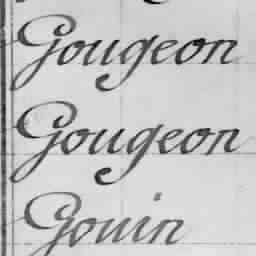 Gougeon
Gougeon
Gouin